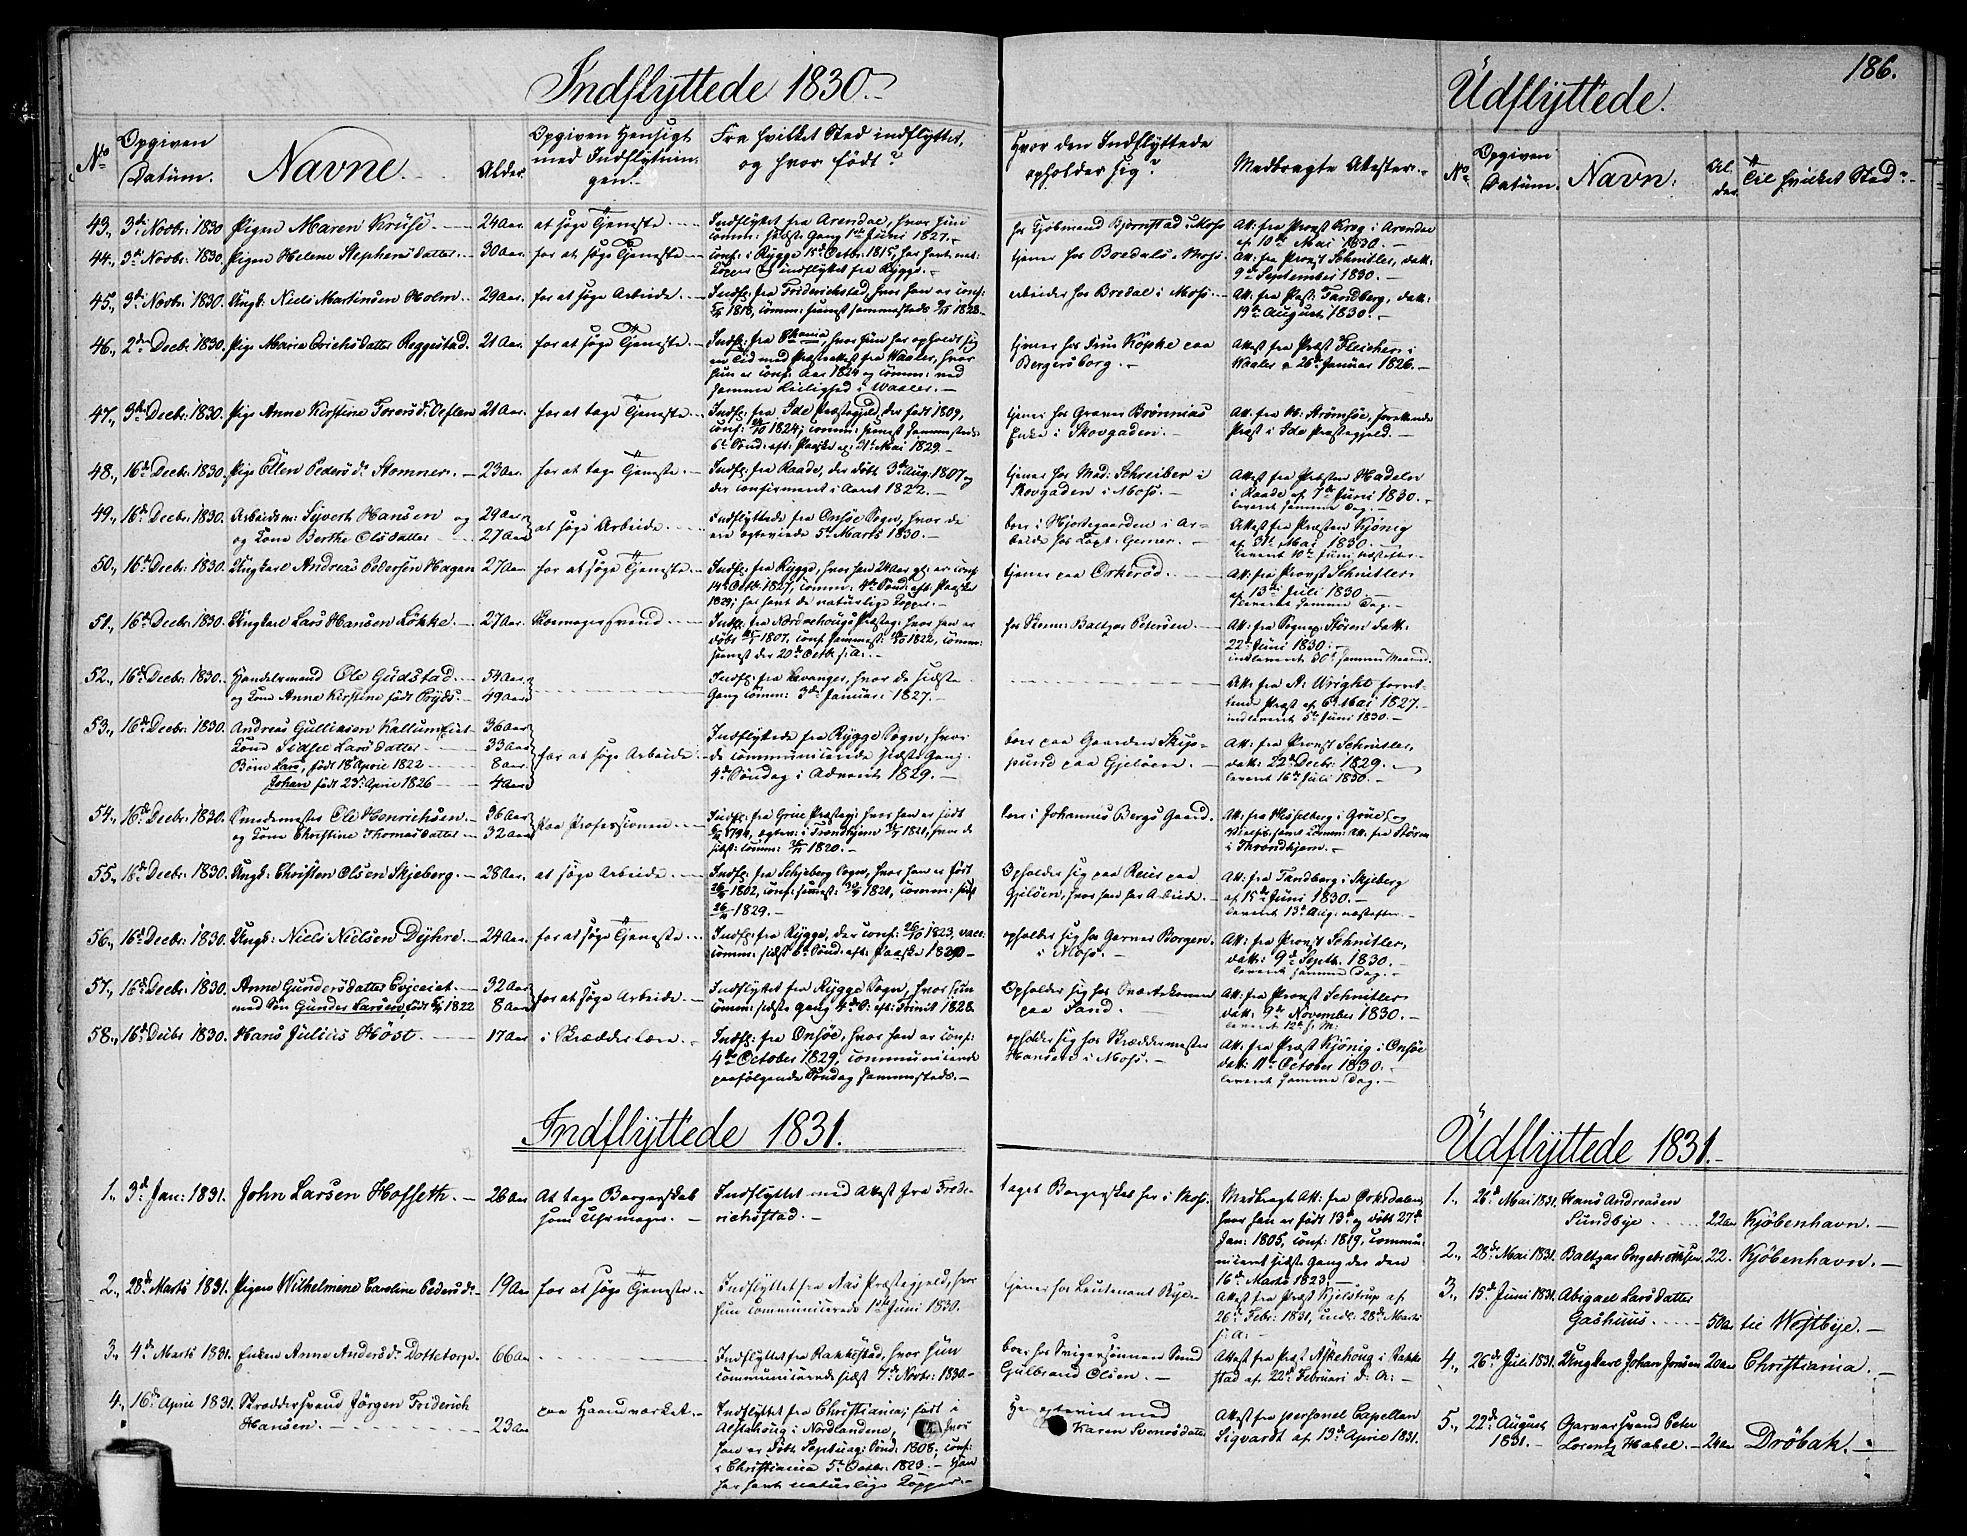 Indflyttede 1830.
Udflyttede.
186.
No
Opgiven
Datum.
Navne.
Alder.
Opgiven Hensigt
med Indflytnin-
gen.
Fra hvilket Sted indflyttet,
og hvor født?
Hvor den Indflyttede
opholder sig?
Medbragte Attester.
No
Opgiven
Datum.
Navn:
Al
der
Til hvilket Sted
43., 3de Novbr: 1830. Pigen Maren Kruse. 24 Aar. at søge Tjeneste
Indflyttet fra Arendal, hvor hun
comm: sidste Gang 1ste Juni 1827.
hos Kjøbmand Bjørnstad i Moss
Att. fra Provst Krog i Arendal
af 10de Mai 1830.
44., 3de Novbr: 1830. Pigen Helene Stephensdatter. 30 Aar. for at søge Tjeneste
conf: i Rygge 15de Octbr: 1815, har havt nat:
Kopper og indflyttet fra Rygge.
tjener hos Bredals i Moss.
Att. fra Provst Schnitler, datt:
9de September 1830.
45., 3de Novbr: 1830. Ungk: Niels Martinsen Holm. 29 Aar. for at søge Arbeide.
Indfl: fra Friderichstad, hvor han er conf:
1818, comm: senest sammesteds 1828.
arbeider hos Bredal i Moss.
Att: fra Præst: Tandberg, datt:
19de August 1830.
46., 2den Decbr: 1830. Pige Maria Erichsdatter Reggestad. 21 Aar. for at søge Tjeneste.
Indfl: fra Chania, hvor hun har opholdt sig
en Tid med Præsteattest fra Waaler, hvor
hun er conf: Aar 1824 og comm: ved
samme Leilighed i Waaler.
tjener hos Frue Köpke paa
Bergersborg.
Attest fra Præst Fleischer i
Waaler a 26de Januar 1826.
47., 3die Decbr: 1830. Pige Anne Kirstine Toresd: 21 Aar. for at tage Tjeneste
Indfl: fra Ide Præstegjeld, der født 1809,
conf: 1824; comm: senest sammesteds
6te Sønd: eft: Paaske af: 31te Mai 1829.
tjener hos Graver Brønnias
Enke i Skovgaden.
Att: fra Strømsøe, forrettende
Præst i Ide Præstegjeld.
48., 16de Decbr: 1830. Pige Ellen Pedersd: Stomner. 23 Aar. for at tage Tjeneste.
Indfl: fra Raade, der døbt 3de Aug: 1807 og
der confirmeret i Aaret 1822.
tjener hos Mad: Schreiber i
Skovgaden i Moss.
Attest fra Præsten Hadeln
i Raade af 7de Juni 1830.
leveret samme Dag.
49., 16de Decbr: 1830. Arbeidsm: Syvert Hansen og 29 Aar
og Kone Berthe Olsdatter 27 Aar at søge Arbeide
Indflyttede fra Onsøe Sogn, hvor de
ere egteviede 5te Marts 1830.
boer i Hjortegaarden i Ar-
beide hos Capt: Gerner.
Attest fra Præsten Kjønig
af 31te Mai 1830.
leveret 10de Juni næstefter.
50., 16de Decbr: 1830. Ungkarl Andreas Pedersen Hagen 27 Aar. for at søge Tjeneste.
Indfl: fra Rygge, hvor han 24 Aar gl: er conf:
14de Octbr: 1827, comm: 4de Sønd: eft: Paaske
1829; har havt de naturlige Kopper.
tjener paa Orkerød.
Att: fra Provst Schnitler
af 13de Juli 1830.
leveret samme Dag.
51., 16de Decbr: 1830. Ungkarl Lars Hansen Løkke. 27 Aar. Skomagersvend
Indfl: fra Nordrehougs Præsteg: hvor han er
døbt 1807, conf. sammest: 1822, comm:
senest der 20de Octb: s: A:
hos Skom: Baltzar Petersen
Att: fra Sognep: Støren datt:
22de Juni 1830:
indleveret 30te samme Maaned.
52., 16de Decbr: 1830. Handelsmand Ole Gudstad. 54 Aar.
og Kone Anne Kirstine født Bryds. 49 Aar.
Indfl: fra Levanger, hvor de sidste
Gang comm: 3die Januar: 1827.
Att: fra A: Wright forret-
tende Præst af 6te Mai 1827.
indleveret 5te Juni 1830.
53., 16de Decbr: 1830. Andreas Gulliksen Kallum Eiet 36 Aar
Kone Sidsel Larsdatter 33 Aar
Børn Lars, født 18de April 1822 8 Aar
Johan født 23de April 1826 4 Aar
for at søge Arbeide
Indflyttede fra Rygge Sogn, hvor
de communicerede sidste Gang
4de Søndag i Advent 1829.
boer paa Gaarden Skip-
pund paa Gjeløen.
Att: fra Provst Schnitler,
datt: 22de Decbr: 1829.
leveret 16de Juli 1830.
54., 16de Decbr: 1830. Smedemester Ole Henrichsen. 36 Aar
og Kone Christine Thomasdatter 32 Aar
paa Professionen.
Indfl: fra Grue Præsteg: hvor han er født
1794, egtev: i Trondhjem 1821, hvor de
sidst: comm: 1820.
boer i Johannis Bergs Gaard.
Att: fra Hesselberg i Grue, og
Vielses- samt Comm: Att. fra Støren
i Throndhjem.
55., 16de Decbr: 1830. Ungk: Christen Olsen Skjeberg. 28 Aar. at søge Arbeide.
Indfl: fra Schjeberg Sogn, hvor han er født
1802, conf: sammest: 1821, comm: sidst
1829.
Opholder sig paa Reier paa
Gjeløen, hvor han har Arbeide.
Att: fra Tandberg i Skjeberg
af 15de Juni 1830.
leveret 13de Aug: næstefter.
56., 16de Decbr: 1830. Ungk: Niels Nielsen Dyhre. 24 Aar. for at søge Tjeneste.
Indfl: fra Rygge, der conf: 26/10 1823, vacc:
comm: sidst 6te Sønd: eft: Paaske 1830
opholder sig hos Garver Borgen
i Moss.
Att: fra Provst Schnitler,
datt: 9de Septb: 1830.
leveret samme Dag.
57., 16de Decbr: 1830. Anne Gundersdatter Evjeeiet. 32 Aar
med Søn Gunder Larsen, født 1822 8 Aar
for at søge Arbeide.
Indflyttet fra Rygge Sogn, hvor hun
comm: sidste Gang 4de S: eft: Trinit 1828.
Opholder sig hos Sværtekonen
paa Sand.
Att: fra Provst Schnitler
datt: 9de November 1830.
leveret 12te s: M:
58., 16de Decbr 1830. Hans Julius Høst. 17 Aar i Skrædderlære.
Indfl: fra Onsøe, hvor han er conf:
4de October 1829, communicerede
paafølgende Søndag sammesteds.
opholder sig hos Skræddermester
Hansen i Moss.
Att: fra Præst Kjønig i Onsøe
datt: 11te October 1830.
leveret samme Dag.
Indflyttede 1831.
Udflyttede 1831.
1., 3de Jan: 1831. John Larsen Hofseth. 26 Aar At tage Borgerskab
som Uhrmager.
Indflyttet med Attest fra Frede-
richsstad.
taget Borgerskab her i Moss.
Medbragt Att: fra Orkedalen,
hvor han er født 13de og døbt 27de
Jan: 1805, conf: 1819, commu-
niceret sidste Gang der den
16de Marts 1823.
2., 28de Marts 1831. Pigen Wilhelmine Caroline Pedersd: 19 Aar for at søge Tjeneste.
Indflyttet fra Aas Præstegjeld, hvor
hun communicerede 1ste Juni 1830.
tjener hos Leutenant Rye.
Attest fra Præst Kjelstrup af
26de Febr: 1831, indl: 28de Marts
s: A:
3., 4de Marts 1831. Enken Anne Andersd: Dottetorp. 66 Aar
Indflyttet fra Rakkestad, hvor hun
communicerede sidst 7de Novbr: 1830.
boer hos Svigersønnen Smed
Gulbrand Olsen.
Attest fra Præst Askehoug i Rakke
stad af 22de Februari d: A:
4., 16de April 1831. Skræddersvend Jørgen Friderich
Hansen. 23 Aar
paa Haandværket.
Indflyttet fra Christiania; født i
Alstahoug i Nordlandene, hvor
han er døbt Septuag: Sønd: 1808, conf:
i Christiania 5te Octbr: 1823. Han
har havt naturlige Kopper.
Her egteviet med
Karen Svensdatter
Attest fra personel Capellan
Sigvardt af 13de April 1831.
1., 26de Mai 1831. Hans Andreasen
Sundbye 22 Aar Kjøbenhavn.
2., 28de Mai 1831. Baltzar Engebretsen 22. Kjøbenhavn.
3., 15de Juni 1831. Abigael Larsdatter
Gashuus 50 Aar til Westbye.
4., 26de Juli 1831. Ungkarl Johan Jensen 20 Aar Christiania.
5., 22de August
1831. Garversvend Peter
Lorentz Habel. 24 Aar Drøbak.